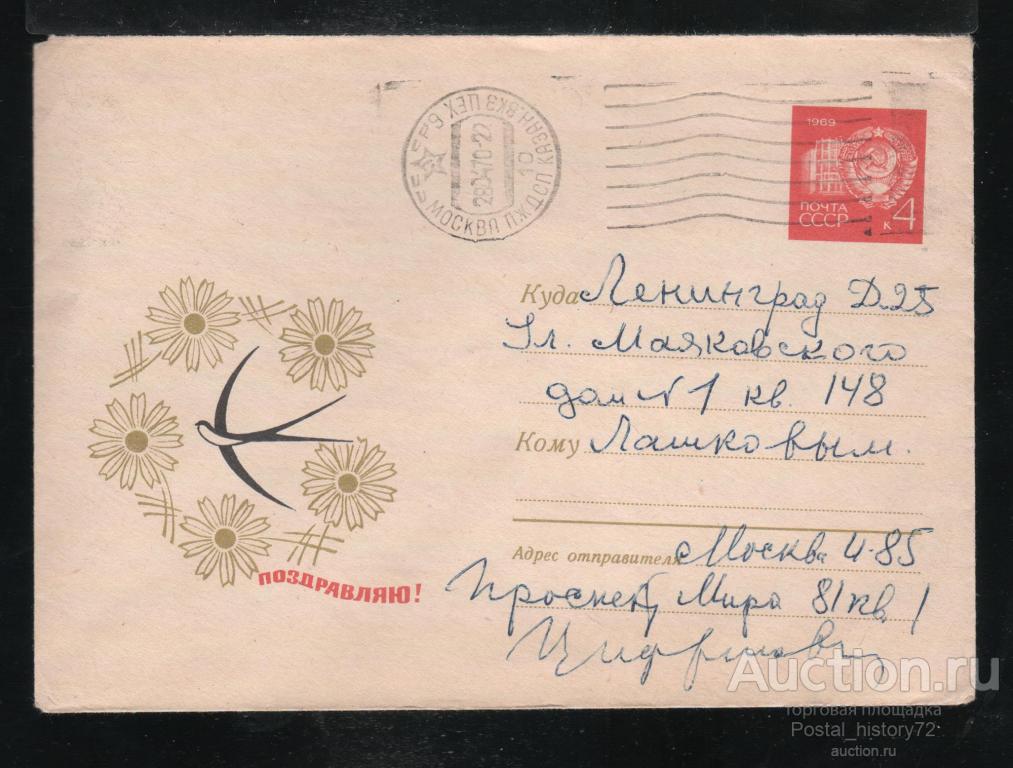 МОСКВА ПЖДСП КАЗАН. ВКЗ ЦЕХ 6
28 04 70 - 22
10
1969
ПОЧТА
СССР
4 к
Куда Ленинград Д-25
Ул. Маяковского
дом № 1 кв. 148
Кому Лашковым.
Адрес отправителя Москва И-85
Проспект Мира 81 кв. 1
ПОЗДРАВЛЯЮ!
Auction.ru
Торговая площадка
Postal_history72
auction.ru